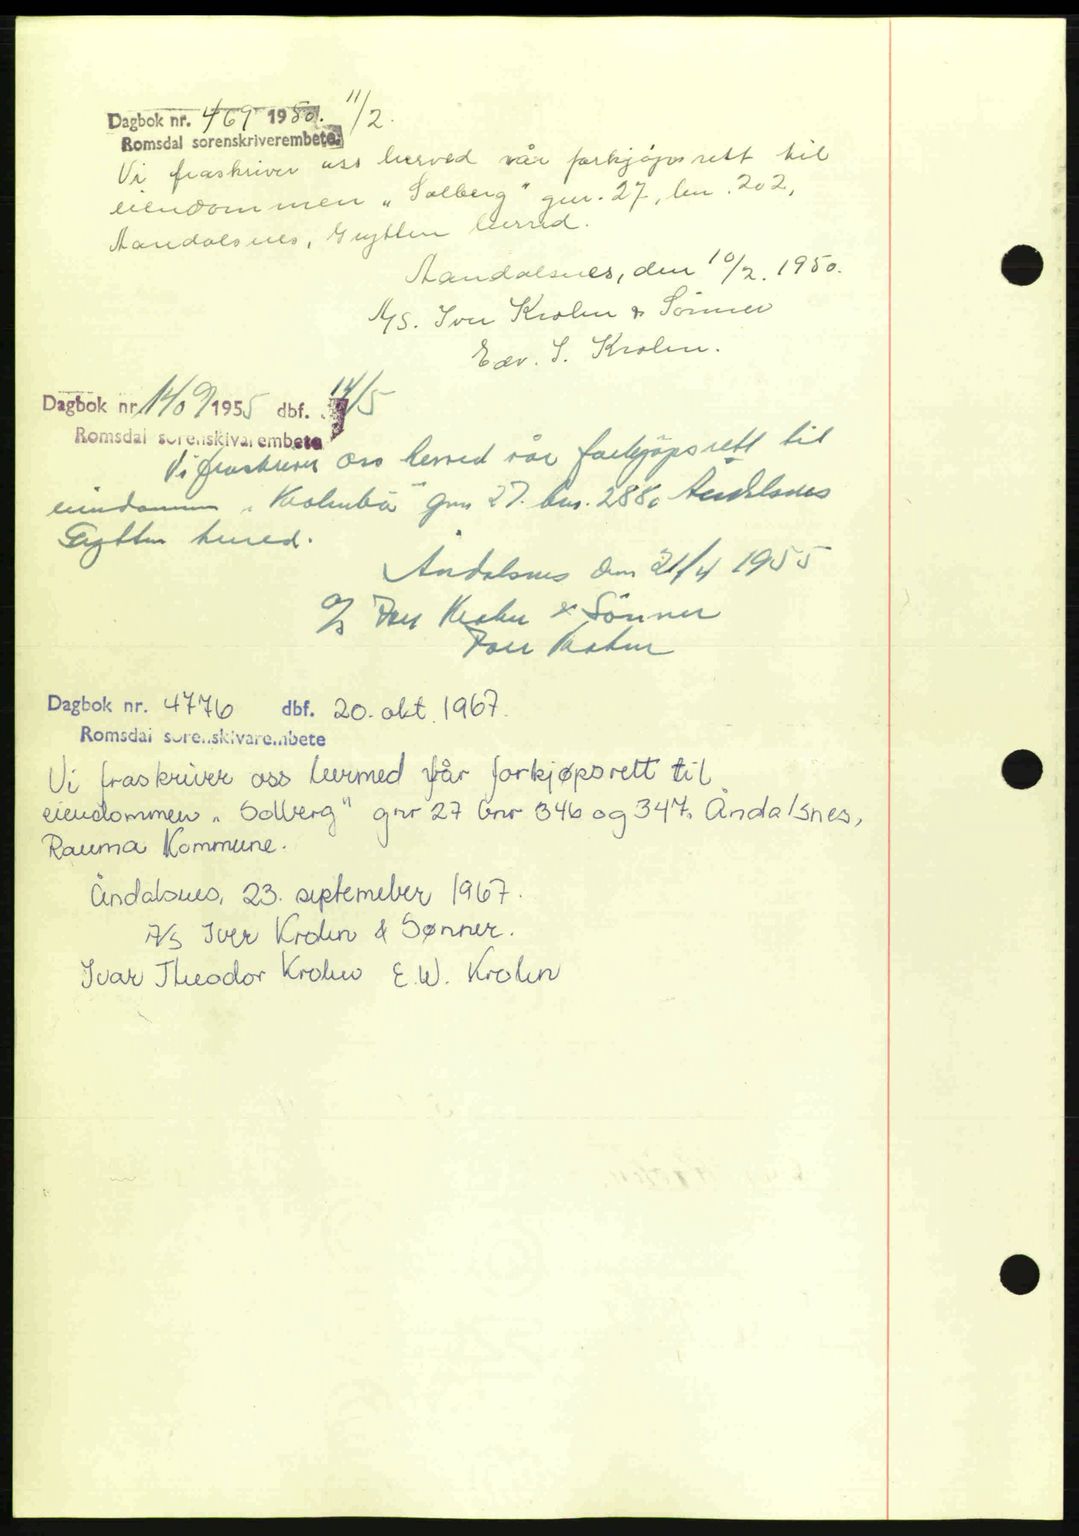 Dagbok nr. 469 1950. 11/2.
Romsdal sorenskriverembete.
Vi fraskriver oss herved vår forkjöpsrett til
eiendommen „Solberg" gnr. 27, bnr. 202,
Aandalsnes, Grytten herred.
Aandalsnes, den 10/2. 1950.
A/S. Iver Krohn & Sönner
Edv. I. Krohn.
Dagbok nr. 1409 1955 dbf. 14/5
Romsdal sorenskrivarembete
Vi fraskriver oss herved vår forkjöpsrett til
eiendommen „ gnr 27. bnr. 288, Åndalsnes
Grytten herred.
Åndalsnes den 21/4 1955
A/S Iver Krohn & Sönner
Iver Krohn
Dagbok nr. 4776 dbf. 20. okt. 1967.
Romsdal sorenskrivarembete
Vi fraskriver oss hermed vår forkjøpsrett til
eiendommen „Solberg" gnr 27 bnr 346 og 347, Åndalsnes,
Rauma Kommune.
Åndalsnes, 23. septemeber 1967.
A/S Iver Krohn & Sønner.
Ivar Theodor Krohn E.W. Krohn